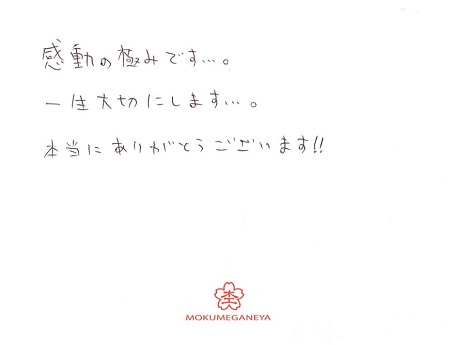 感動の極みです…。
一生大切にします…。
本当にありがとうございます!!
杢
MOKUMEGANEYA